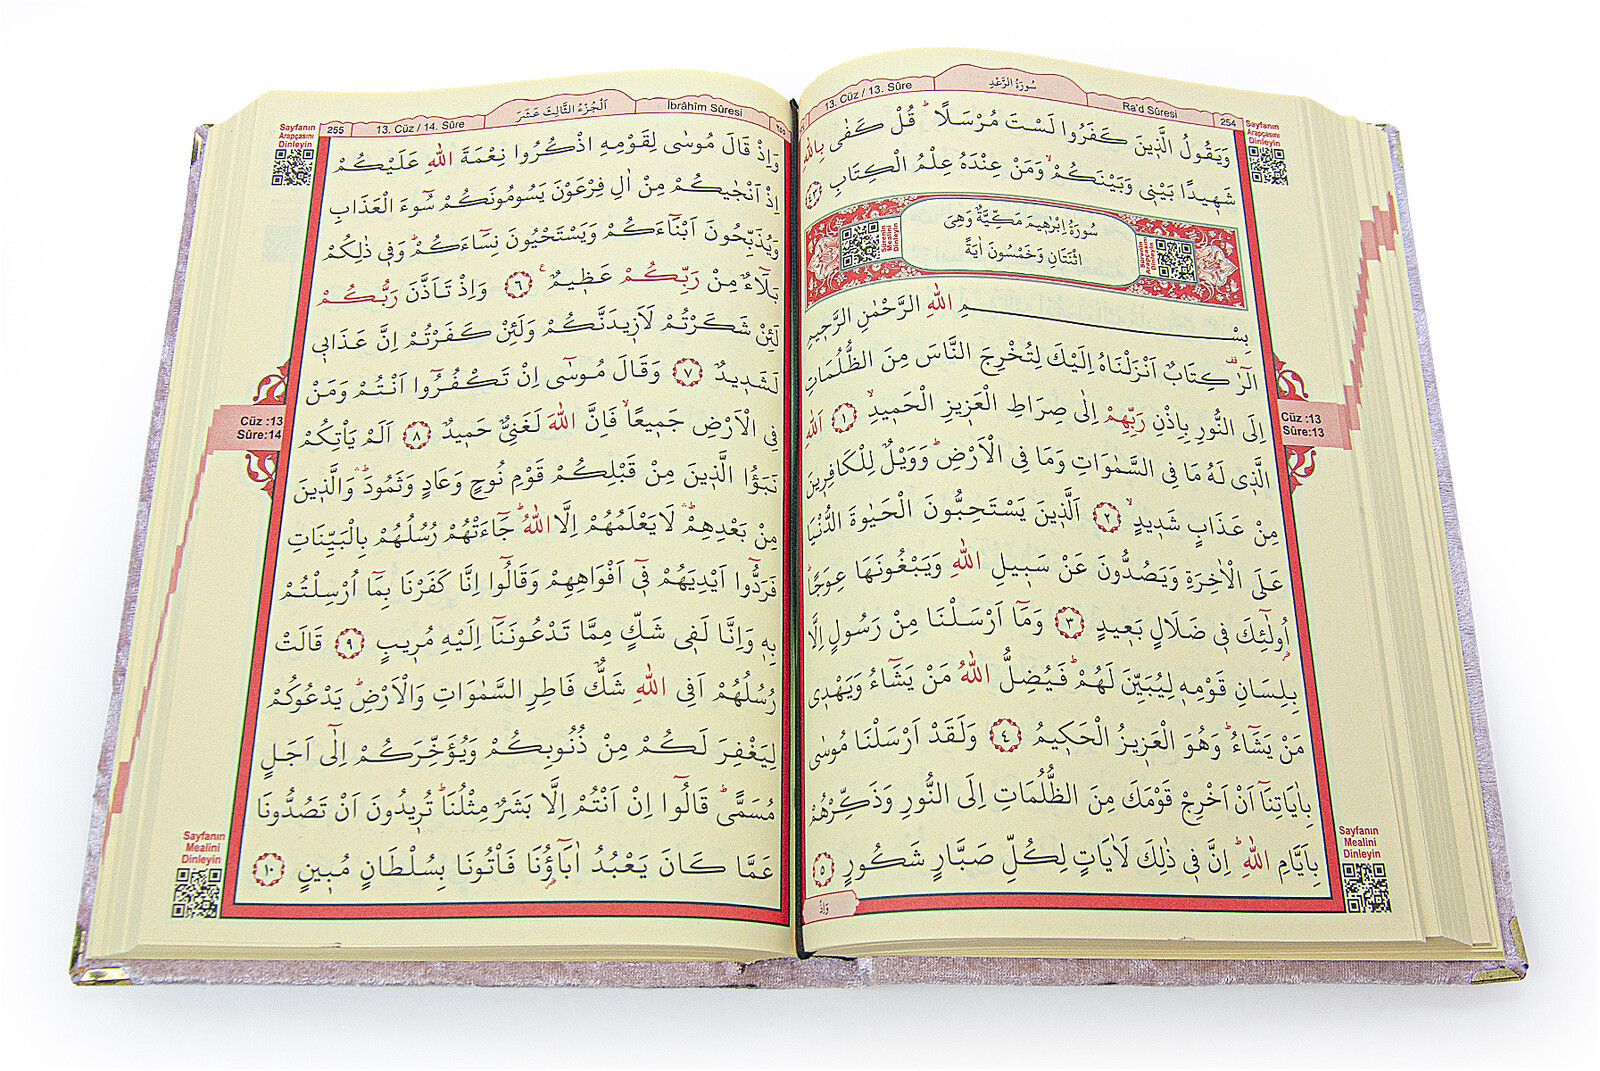 سُورَةُ الرَّعْدِ
13. Cüz / 13. Sûre
Ra'd Sûresi
254
Sayfanın
Arapçasını
Dinleyin
وَيَقُولُ الَّذ۪ينَ كَفَرُوا لَسْتَ مُرْسَلًاۜ قُلْ كَفٰى بِاللّٰهِ
شَه۪يدًا بَيْن۪ي وَبَيْنَكُمْۙ وَمَنْ عِنْدَهُ عِلْمُ الْكِتَابِ ﴿٤٣﴾
سُورَةُ اِبْرٰه۪يمَ مَكِّيَّةٌ وَهِيَ
اثْنَتَانِ وَخَمْسُونَ اٰيَةً
Surenin
Mealini
Dinleyin
Surenin
Arapçasını
Dinleyin
بِسْمِ اللّٰهِ الرَّحْمٰنِ الرَّح۪يمِ
الٓرٰ۠ كِتَابٌ اَنْزَلْنَاهُ اِلَيْكَ لِتُخْرِجَ النَّاسَ مِنَ الظُّلُمَاتِ
اِلَى النُّورِ بِاِذْنِ رَبِّهِمْ اِلٰى صِرَاطِ الْعَز۪يزِ الْحَم۪يدِۙ ﴿١﴾ اَللّٰهِ
الَّذ۪ي لَهُ مَا فِي السَّمٰوَاتِ وَمَا فِي الْاَرْضِۜ وَوَيْلٌ لِلْكَافِر۪ينَ
مِنْ عَذَابٍ شَد۪يدٍۙ ﴿٢﴾ اَلَّذ۪ينَ يَسْتَحِبُّونَ الْحَيٰوةَ الدُّنْيَا
عَلَى الْاٰخِرَةِ وَيَصُدُّونَ عَنْ سَب۪يلِ اللّٰهِ وَيَبْغُونَهَا عِوَجًاۜ
اُو۬لٰٓئِكَ ف۪ي ضَلَالٍ بَع۪يدٍ ﴿٣﴾ وَمَٓا اَرْسَلْنَا مِنْ رَسُولٍ اِلَّا
بِلِسَانِ قَوْمِه۪ لِيُبَيِّنَ لَهُمْۜ فَيُضِلُّ اللّٰهُ مَنْ يَشَٓاءُ وَيَهْد۪ي
مَنْ يَشَٓاءُۜ وَهُوَ الْعَز۪يزُ الْحَك۪يمُ ﴿٤﴾ وَلَقَدْ اَرْسَلْنَا مُوسٰى
بِاٰيَاتِنَٓا اَنْ اَخْرِجْ قَوْمَكَ مِنَ الظُّلُمَاتِ اِلَى النُّورِ وَذَكِّرْهُمْ
بِاَيَّامِ اللّٰهِۜ اِنَّ ف۪ي ذٰلِكَ لَاٰيَاتٍ لِكُلِّ صَبَّارٍ شَكُورٍ ﴿٥﴾
وَاِذْ
Cüz :13
Sûre:13
Sayfanın
Mealini
Dinleyin
اَلْجُزْءُ الثَّالِثَ عَشَرَ
255
13. Cüz / 14. Sûre
İbrâhîm Sûresi
٢٥٥
Sayfanın
Arapçasını
Dinleyin
وَاِذْ قَالَ مُوسٰى لِقَوْمِهِ اذْكُرُوا نِعْمَةَ اللّٰهِ عَلَيْكُمْ
اِذْ اَنْجٰيكُمْ مِنْ اٰلِ فِرْعَوْنَ يَسُومُونَكُمْ سُٓوءَ الْعَذَابِ
وَيُذَبِّحُونَ اَبْنَٓاءَكُمْ وَيَسْتَحْيُونَ نِسَٓاءَكُمْۜ وَف۪ي ذٰلِكُمْ
بَلَٓاءٌ مِنْ رَبِّكُمْ عَظ۪يمٌ۟ ﴿٦﴾ وَاِذْ تَاَذَّنَ رَبُّكُمْ
لَئِنْ شَكَرْتُمْ لَاَز۪يدَنَّكُمْ وَلَئِنْ كَفَرْتُمْ اِنَّ عَذَاب۪ي
لَشَد۪يدٌ ﴿٧﴾ وَقَالَ مُوسٰٓى اِنْ تَكْفُرُٓوا اَنْتُمْ وَمَنْ
فِي الْاَرْضِ جَم۪يعًاۙ فَاِنَّ اللّٰهَ لَغَنِيٌّ حَم۪يدٌ ﴿٨﴾ اَلَمْ يَاْتِكُمْ
نَبَؤُا الَّذ۪ينَ مِنْ قَبْلِكُمْ قَوْمِ نُوحٍ وَعَادٍ وَثَمُودَۜۛ وَالَّذ۪ينَ
مِنْ بَعْدِهِمْۜۛ لَا يَعْلَمُهُمْ اِلَّا اللّٰهُۜ جَٓاءَتْهُمْ رُسُلُهُمْ بِالْبَيِّنَاتِ
فَرَدُّٓوا اَيْدِيَهُمْ ف۪ٓي اَفْوَاهِهِمْ وَقَالُٓوا اِنَّا كَفَرْنَا بِمَٓا اُرْسِلْتُمْ
بِه۪ وَاِنَّا لَف۪ي شَكٍّ مِمَّا تَدْعُونَنَٓا اِلَيْهِ مُر۪يبٍ ﴿٩﴾ قَالَتْ
رُسُلُهُمْ اَفِي اللّٰهِ شَكٌّ فَاطِرِ السَّمٰوَاتِ وَالْاَرْضِۜ يَدْعُوكُمْ
لِيَغْفِرَ لَكُمْ مِنْ ذُنُوبِكُمْ وَيُؤَخِّرَكُمْ اِلٰٓى اَجَلٍ
مُسَمًّىۜ قَالُٓوا اِنْ اَنْتُمْ اِلَّا بَشَرٌ مِثْلُنَاۜ تُر۪يدُونَ اَنْ تَصُدُّونَا
عَمَّا كَانَ يَعْبُدُ اٰبَٓاؤُ۬نَا فَاْتُونَا بِسُلْطَانٍ مُب۪ينٍ ﴿١٠﴾
Cüz :13
Sûre:14
Sayfanın
Mealini
Dinleyin